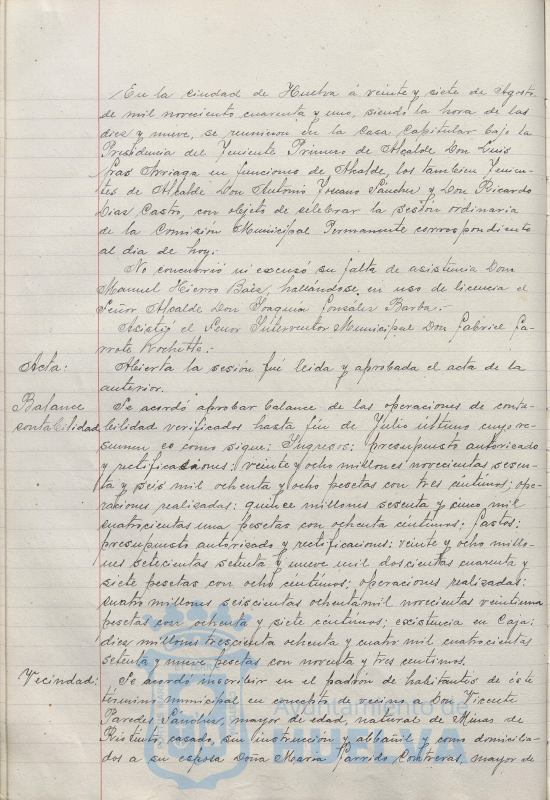 En la ciudad de Huelva á veinte y siete de Agosto
de mil novecientos cuarenta y uno, siendo la hora de las
diez y nueve, se reunieron en la Casa Capitular bajo la
Presidencia del Teniente Primero de Alcalde Don Luis
Arriaga en funciones de Alcalde, los tambien Tenien-
tes de Alcalde Don Antonio Sánchez y Don Ricardo
Diaz Castro, con objeto de celebrar la sesión ordinaria
de la Comisión Municipal Permanente correspondiente
al dia de hoy.
No concurrió ni escusó su falta de asistencia Don
Manuel Hierro Baez, hallándose, en uso de licencia el
Señor Alcalde Don Joaquín González Barba.-
Asistió el Señor Interventor Municipal Don Gabriel Ga-
rrote Rochette.-
Acta: Abierta la sesión fué leida y aprobada el acta de la
anterior.
Balance Se acordó aprobar balance de las operaciones de conta-
contabilidad bilidad verificados hasta fin de Julio último cuyo re-
sumen es como sigue: Ingresos: presupuesto autorizado
y rectificaciones: veinte y ocho millones novecientas sesen-
ta y seis mil ochenta y ocho pesetas con tres centimos; ope-
raciones realizadas: quince millones sesenta y cinco mil
cuatrocientas una pesetas con ochenta centimos: Gastos:
presupuesto autorizado y rectificaciones: veinte y ocho millo-
nes setecientas setenta y nueve mil doscientas cuarenta y
siete pesetas con ocho céntimos; operaciones realizadas:
cuatro millones seiscientas ochenta mil novecientas veintiuna
pesetas con ochenta y siete centimos; existencia en Caja:
diez millones trescienta ochenta y cuatro mil cuatrocientas
setenta y nueve pesetas con noventa y tres centimos.
Vecindad: Se acordó inscribir en el padrón de habitantes de éste
término municipal en concepto de vecino a Don Vicente
Paredes Sánchez, mayor de edad, natural de Minas de
Riotinto, casado, sin instrucción y albañil y como domicilia-
dos a su esposa Doña María Garrido Contreras, mayor de
Ayuntamiento de
HUELVA